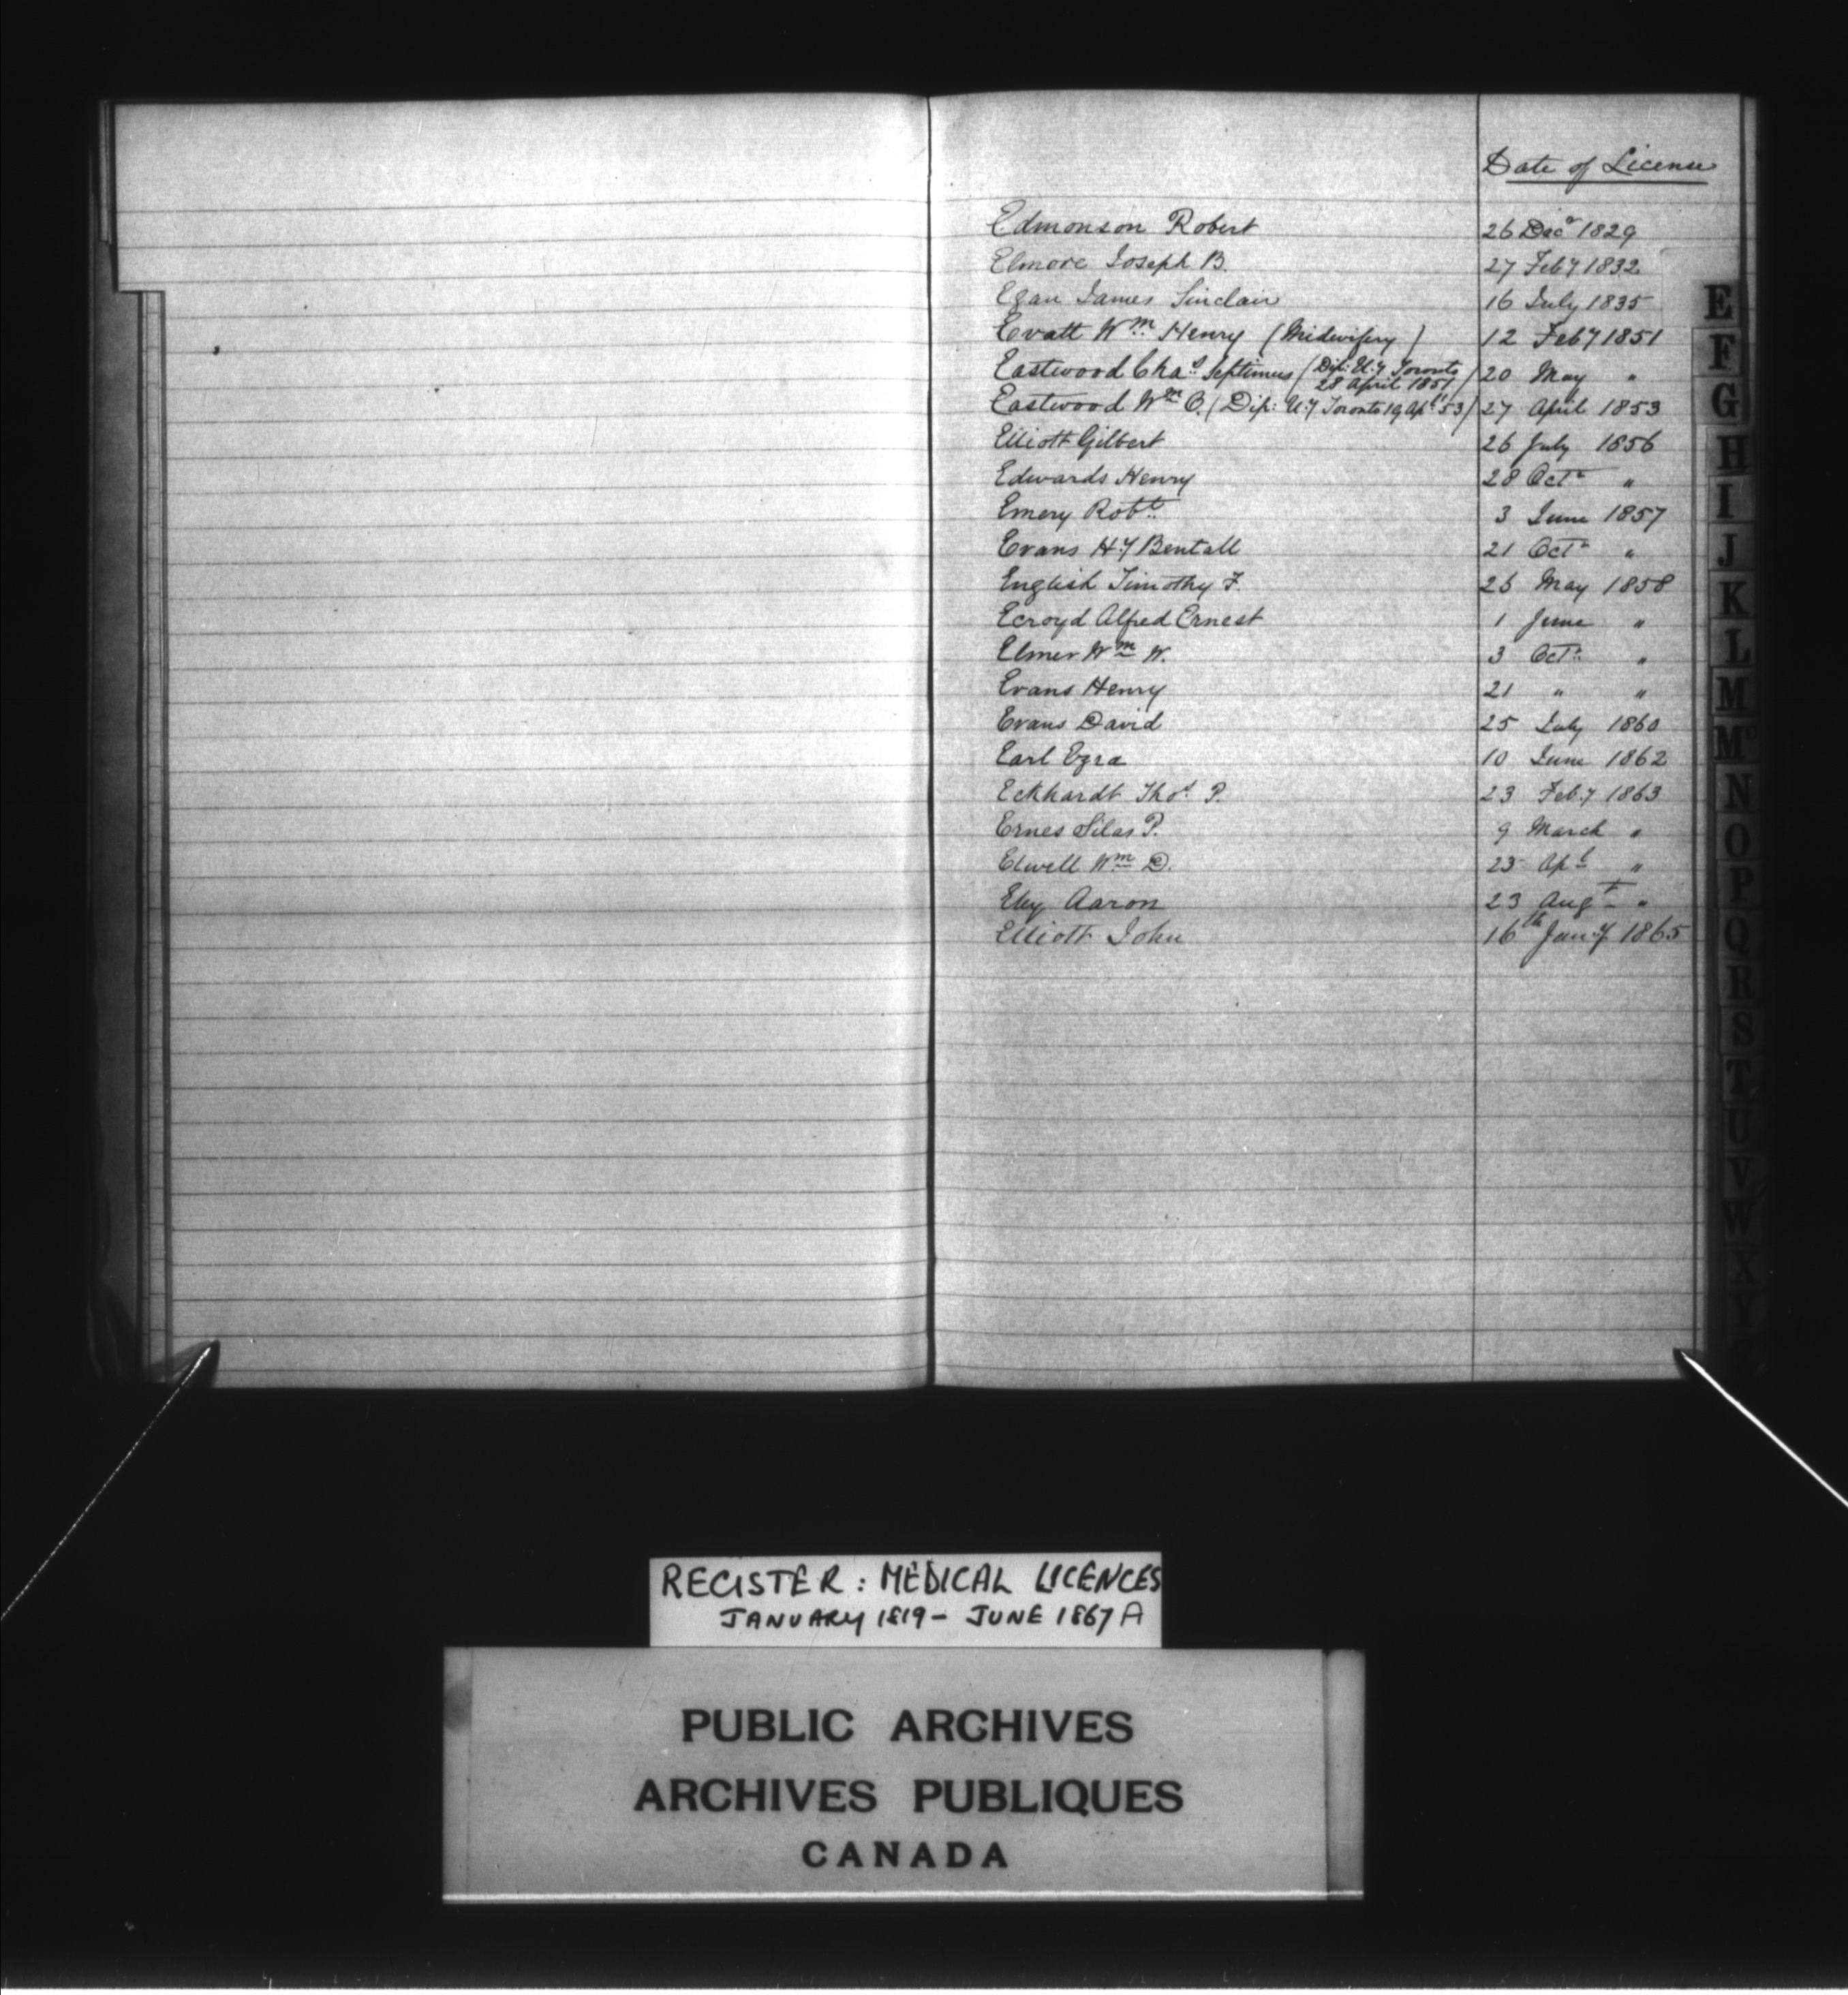 Date of License
Edmonson Robert 26 Decr 1829
Elmore Joseph B. 27 Feby 1832
Egan James Sinclair 16 July 1835
Evatt Wm Henry (Midwifery) 12 Feby 1851
Eastwood Chas Septimus (Dip: U:y Toronto 28 April 1851) 20 May "
Eastwood Wm O. (Dip: U:y Toronto 19 Apl 53) 27 April 1853
Elliott Gilbert 26 July 1856
Edwards Henry 28 Octr "
Emery Robt 3 June 1857
Evans Hy Bentall 21 Octr "
English Timothy F. 26 May 1858
Ecroyd Alfred Ernest 1 June "
Elmer Wm W. 3 Octr "
Evans Henry 21 " "
Evans David 25 July 1860
Earl Ezra 10 June 1862
Eckhardt Thos P. 23 Feb:y 1863
Ernes Silas P. 9 March "
Elwell Wm D. 25 Apl "
Eby Aaron 23 Augt "
Elliott John 16th Jany 1865
E
F
G
H
I
J
K
L
M
Mc
N
O
P
Q
R
S
T
U
V
W
X
Y
REGISTER: MEDICAL LICENCES
JANUARY 1819 – JUNE 1867 A
PUBLIC ARCHIVES
ARCHIVES PUBLIQUES
CANADA